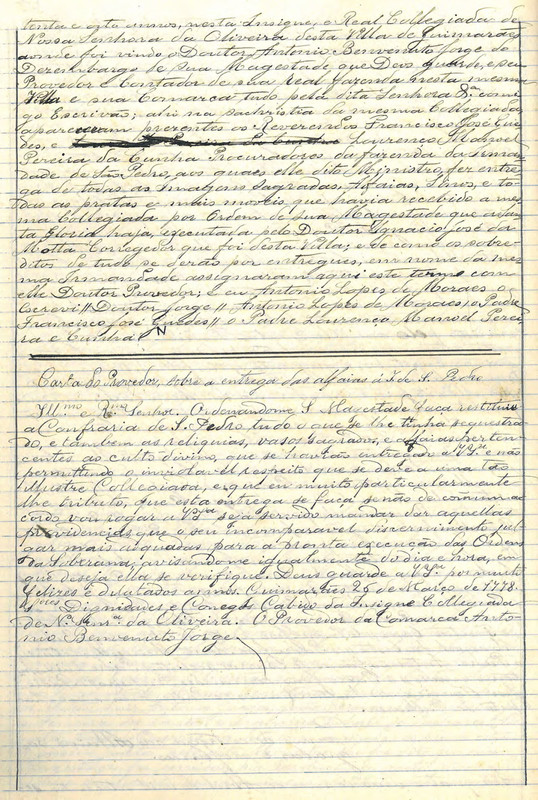 tenta e oito annos, nesta Insigne, e Real Collegiada de
Nossa Senhora da Oliveira desta Villa de Guimarães
aonde foi vindo o Doutor Antonio Benvenuto Jorge do
Dezembargo de Sua Magestade que Deus guarde, e seu
Provedor e Contador de sua Real fazenda nesta mesma
Villa e sua Comarca tudo pela dita Senhora &ª comi-
go Escrivaõ; ahi na sachristia da mesma Collegiada,
apareceram prezentes os Reverendos Francisco José Gue-
des, e Lourenço Manoel
Pereira da Cunha Procuradores da fazenda da Irman-
dade de Saõ Pedro, aos quaes elle dito Ministro, fez entre-
ga de todas as Imagens Sagradas, Alfaias, Sinos, e to-
das as pratas e mais moveis que havia recebido a mes-
ma Collegiada por Ordem de Sua Magestade que
Gloria haja, executada pelo Doutor Ignacio José da
Motta Corregedor que foi desta Villa; e de como os sobre-
ditos de tudo se deraõ por entregues, em nome da mes-
ma Irmandade assignaram aqui este termo com
elle Doutor Provedor; e eu Antonio Lopes de Moraes o
escrevi // Doutor Jorge // Antonio Lopes de Moraes // o Padre
Francisco José Guedes // o Padre Lourenço Manoel Perei-
ra e Cunha //
N
Carta do Provedor, sobre a entrega das alfaias á I. de S. Pedro
Ill.mo e R.mo Senhor. Ordenandome S. Magestade faça restituir
a Confraria de S. Pedro tudo o que se lhe tinha sequestra-
do, e tambem as reliquias, vasos sagrados, e alfaias perten-
centes ao culto divino, que se haviaõ entregado a V.S.ª e naõ
permittindo o inviolavel respeito que se deve a uma tão
Illustre Collegiada, e que eu muito particularmente
lhe tributo, que esta entrega se faça se não de commum a-
cordo vou rogar a V.S.ª seja servido mandar dar aquellas
providencias que o seu incomparavel discernimento jul-
gar mais adquadas para a pronta execução das Ordens
da Soberana, avisandome igualmente do dia e hora, em
que deseja ella se verifique. Deus guarde a V.S.ª por muitos
felizes e dilatados annos. Guimarães 26 de Março de 1778.
S.res Dignidades e Conegos Cabido da Insigne Collegiada
de N.ª Snr.ª da Oliveira. O Provedor da Comarca Anto-
nio Benvenuto Jorge.